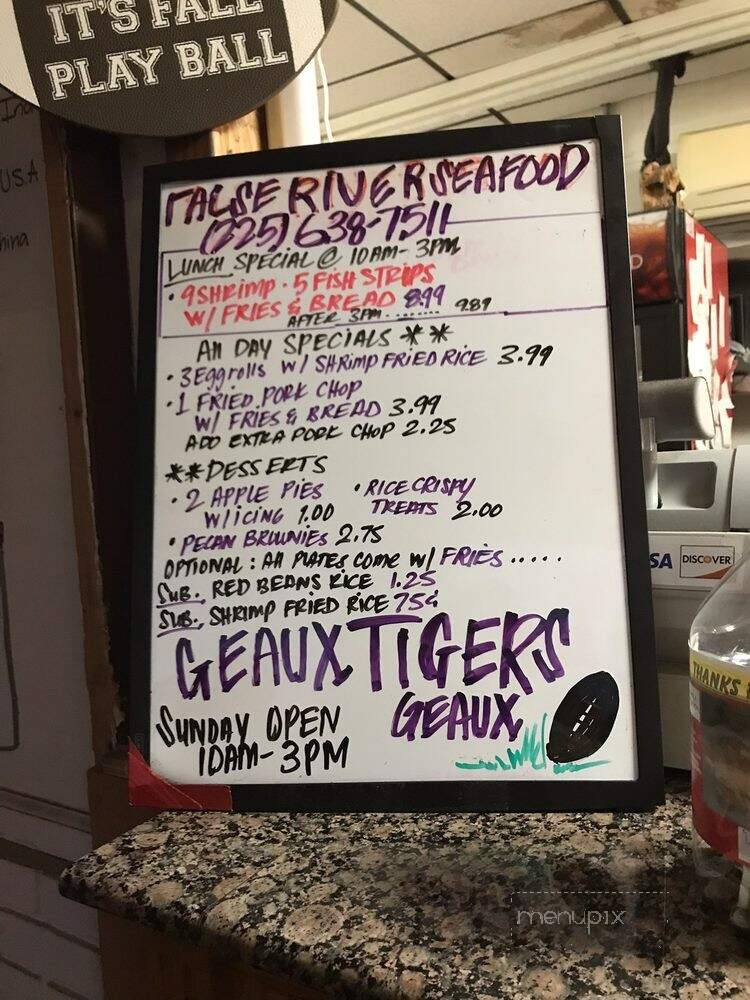 IT'S FALL
PLAY BALL
USA
hina
FALSE RIVER SEAFOOD
(225) 638-7511
LUNCH SPECIAL @ 10AM-3PM
• 9 SHRIMP • 5 FISH STRIPS
W/ FRIES & BREAD 8.99
AFTER 3PM-....... 9.89
All DAY SPECIALS **
• 3 Eggrolls W/ SHRIMP FRIED RICE 3.99
• 1 FRIED PORK CHOP
W/ FRIES & BREAD 3.99
ADD EXTRA PORK CHOP 2.25
**DESSERTS
• 2 APPLE PIES
W/ICING 1.00
• RICE CRISPY
TREATS 2.00
• PECAN BROWNIES 2.75
OPTIONAL: All PLATES COME W/ FRIES.....
SUB. RED BEANS RICE 1.25
SUB., SHRIMP FRIED RICE 75¢
GEAUX TIGERS
GEAUX
SUNDAY OPEN
10AM-3PM
SA
DISCOVER
THANKS
menupix